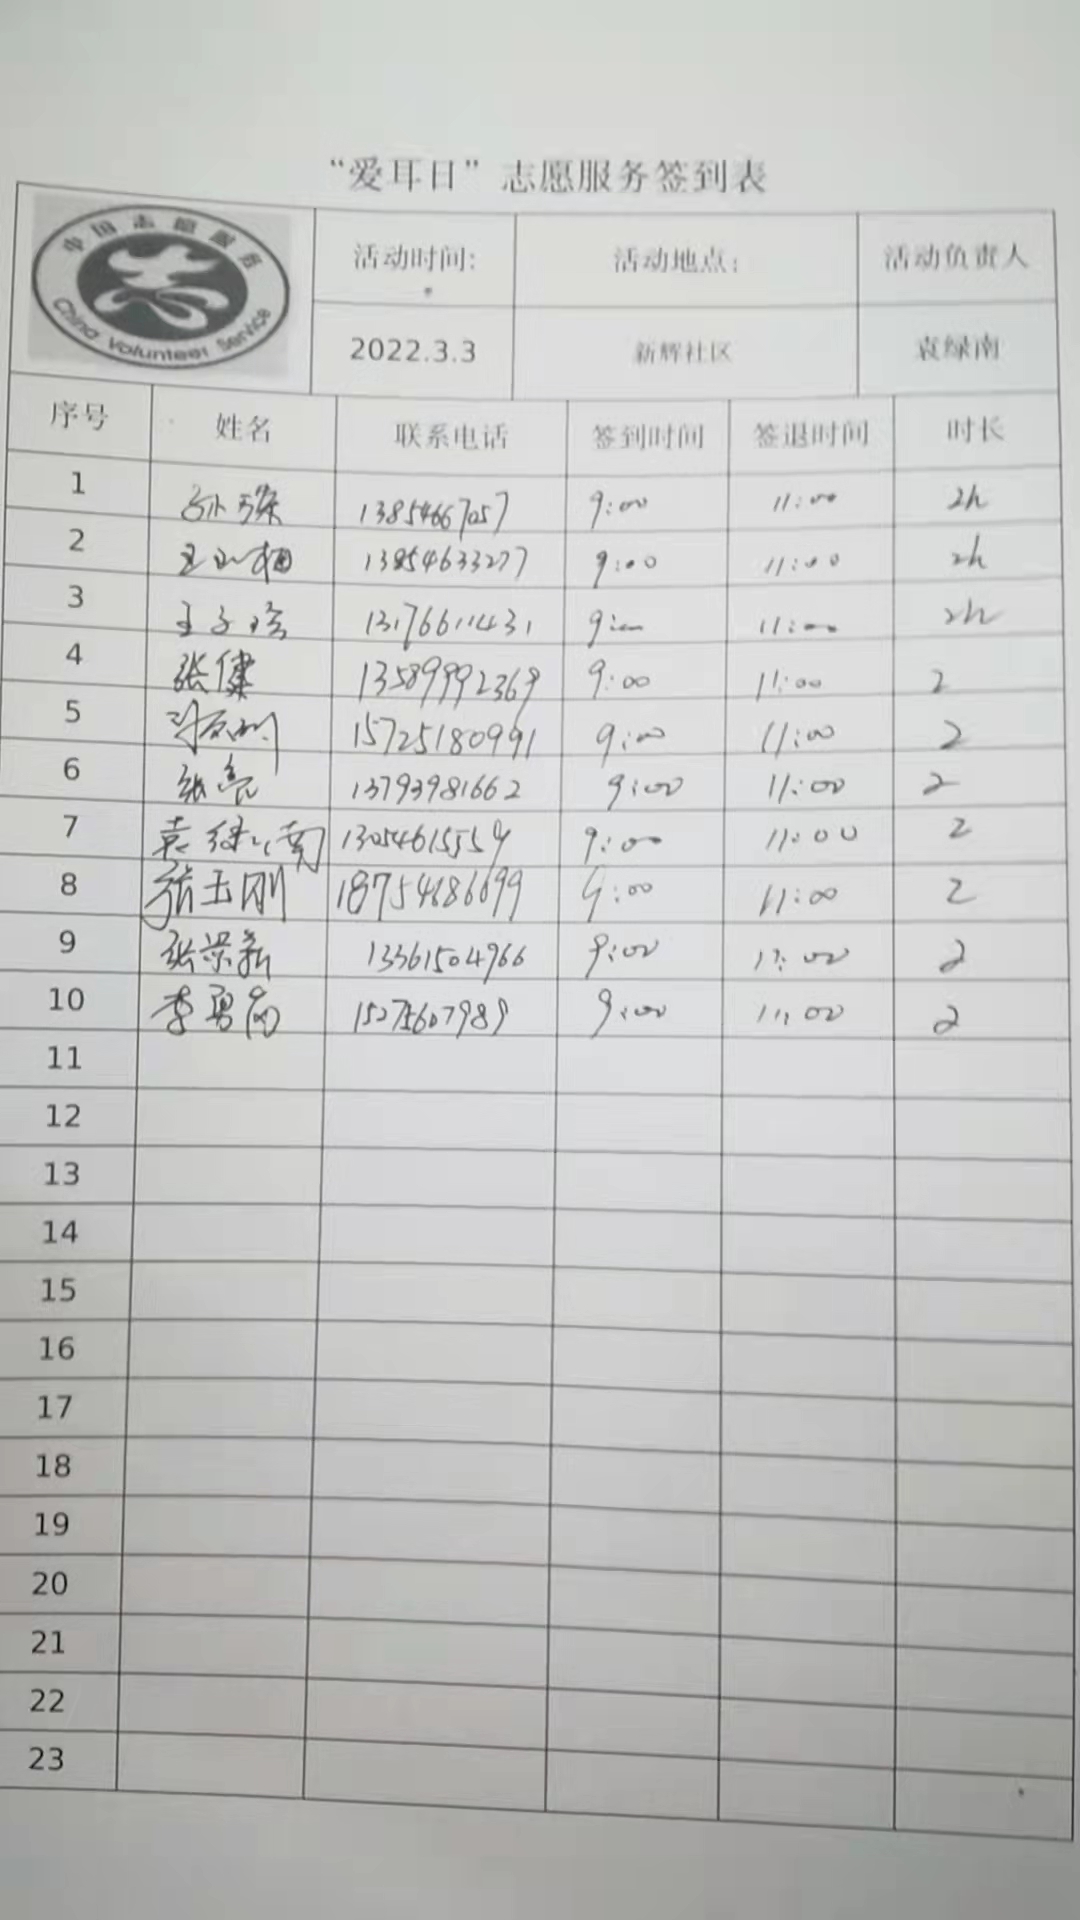 “爱耳日”志愿服务签到表
中国志愿服务
China Volunteer Service
活动时间: 活动地点: 活动负责人
2022.3.3 新辉社区 袁绿南
序号 姓名 联系电话 签到时间 签退时间 时长
1 13854667057 9:00 11:00 2h
2 13854633277 9:00 11:00 2h
3 13176611431 9:00 11:00 2h
4 张健 13589992369 9:00 11:00 2
5 15725180991 9:00 11:00 2
6 张亮 13793981662 9:00 11:00 2
7 袁绿南 13054615559 9:00 11:00 2
8 张玉刚 18754686699 9:00 11:00 2
9 张荣新 13361504966 9:00 11:00 2
10 李勇岗 15275607989 9:00 11:00 2
11
12
13
14
15
16
17
18
19
20
21
22
23